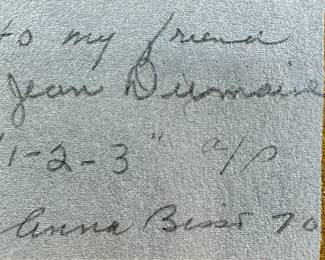 to my friend
Jean Dumaine
"1-2-3" a/p
Anna Bisso 70